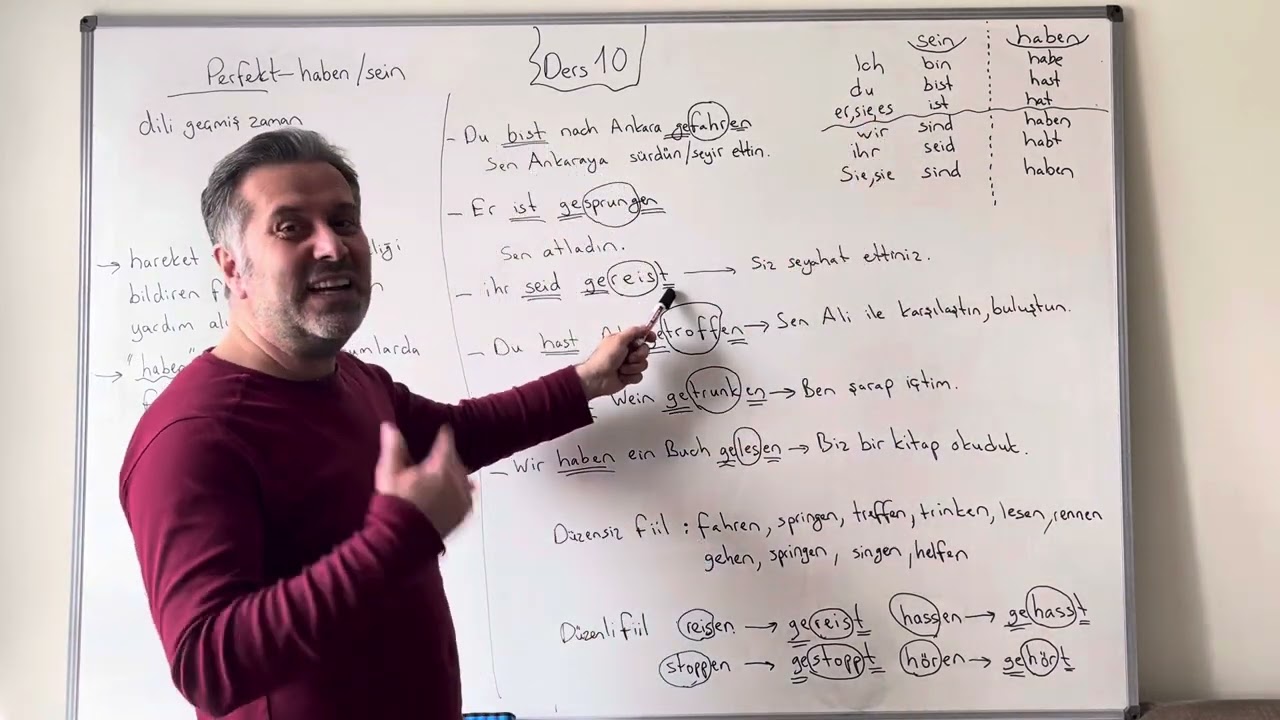 Perfekt-haben/sein
dili geçmiş zaman
→ hareket
bildiren
yardım
→ "haben"
Ders 10
- Du bist nach Ankara gefahren
Sen Ankaraya sürdün/seyir ettin.
- Er ist gesprungen
Sen atladın.
- ihr seid gereist → Siz seyahat ettiniz.
- Du hast getroffen → Sen Ali ile karşılaştın, buluştun.
Wein getrunken → Ben şarap içtim.
- Wir haben ein Buch gelesen → Biz bir kitap okuduk.
Düzensiz fiil : fahren, springen, treffen, trinken, lesen, rennen
gehen, springen, singen, helfen
Düzenli fiil reisen → gereist hassen → gehasst
stoppen → gestoppt hören → gehört
sein haben
Ich bin habe
du bist hast
er,sie,es ist hat
wir sind haben
ihr seid habt
Sie,sie sind haben